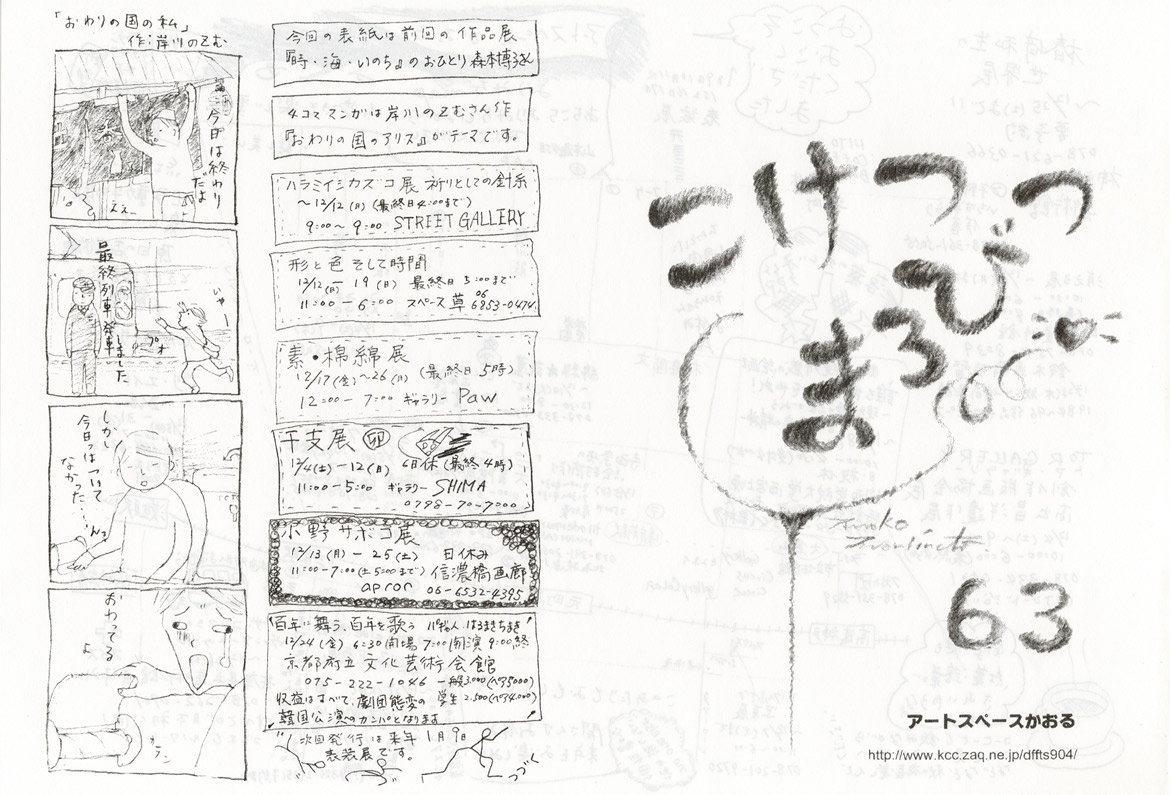 「おわりの国の私」
作:岸川のぞむ
今日は終わり
だよ
ええ
最終列車発車
しました
いやー
しかし
今日はついて
なかった…
おわってる
よ
今回の表紙は前回の作品展
『時・海・いのち』のおひとり森本博子さん
4コママンガは岸川のぞむさん作
『おわりの国のアリス』がテーマです。
ハラミイシカズコ展 祈りとしての針糸
〜12/12(日)(最終日4:00まで)
9:00〜9:00 STREET GALLERY
形と色そして時間
12/12(日)-19(日) 最終日5:00まで
11:00-6:00 スペース草 06 6853-0474
素・棉綿展
12/17(金)〜26(日)(最終日5時)
12:00-7:00 ギャラリー Paw
干支展 卯
12/4(土)-12(日) 6日休(最終4時)
11:00-5:00 ギャラリー SHIMA
0798-70-7000
小野サボコ展
12/13(月)-25(土) 日休み
11:00-7:00(土5:00まで) 信濃橋画廊
apron 06-6532-4395
百年に舞う、百年を歌う
12/24(金) 6:30開場 7:00開演 9:00終
京都府立文化芸術会館
075-222-1046 一般3,000(ペア5000)
収益はすべて、劇団態変の 学生2,500(ペア4000)
韓国公演へのカンパとなります
次回発行は来年1月9日
表装展です。
つづく
こけつ
まろびつ
63
アートスペースかおる
http://www.kcc.zaq.ne.jp/dffts904/